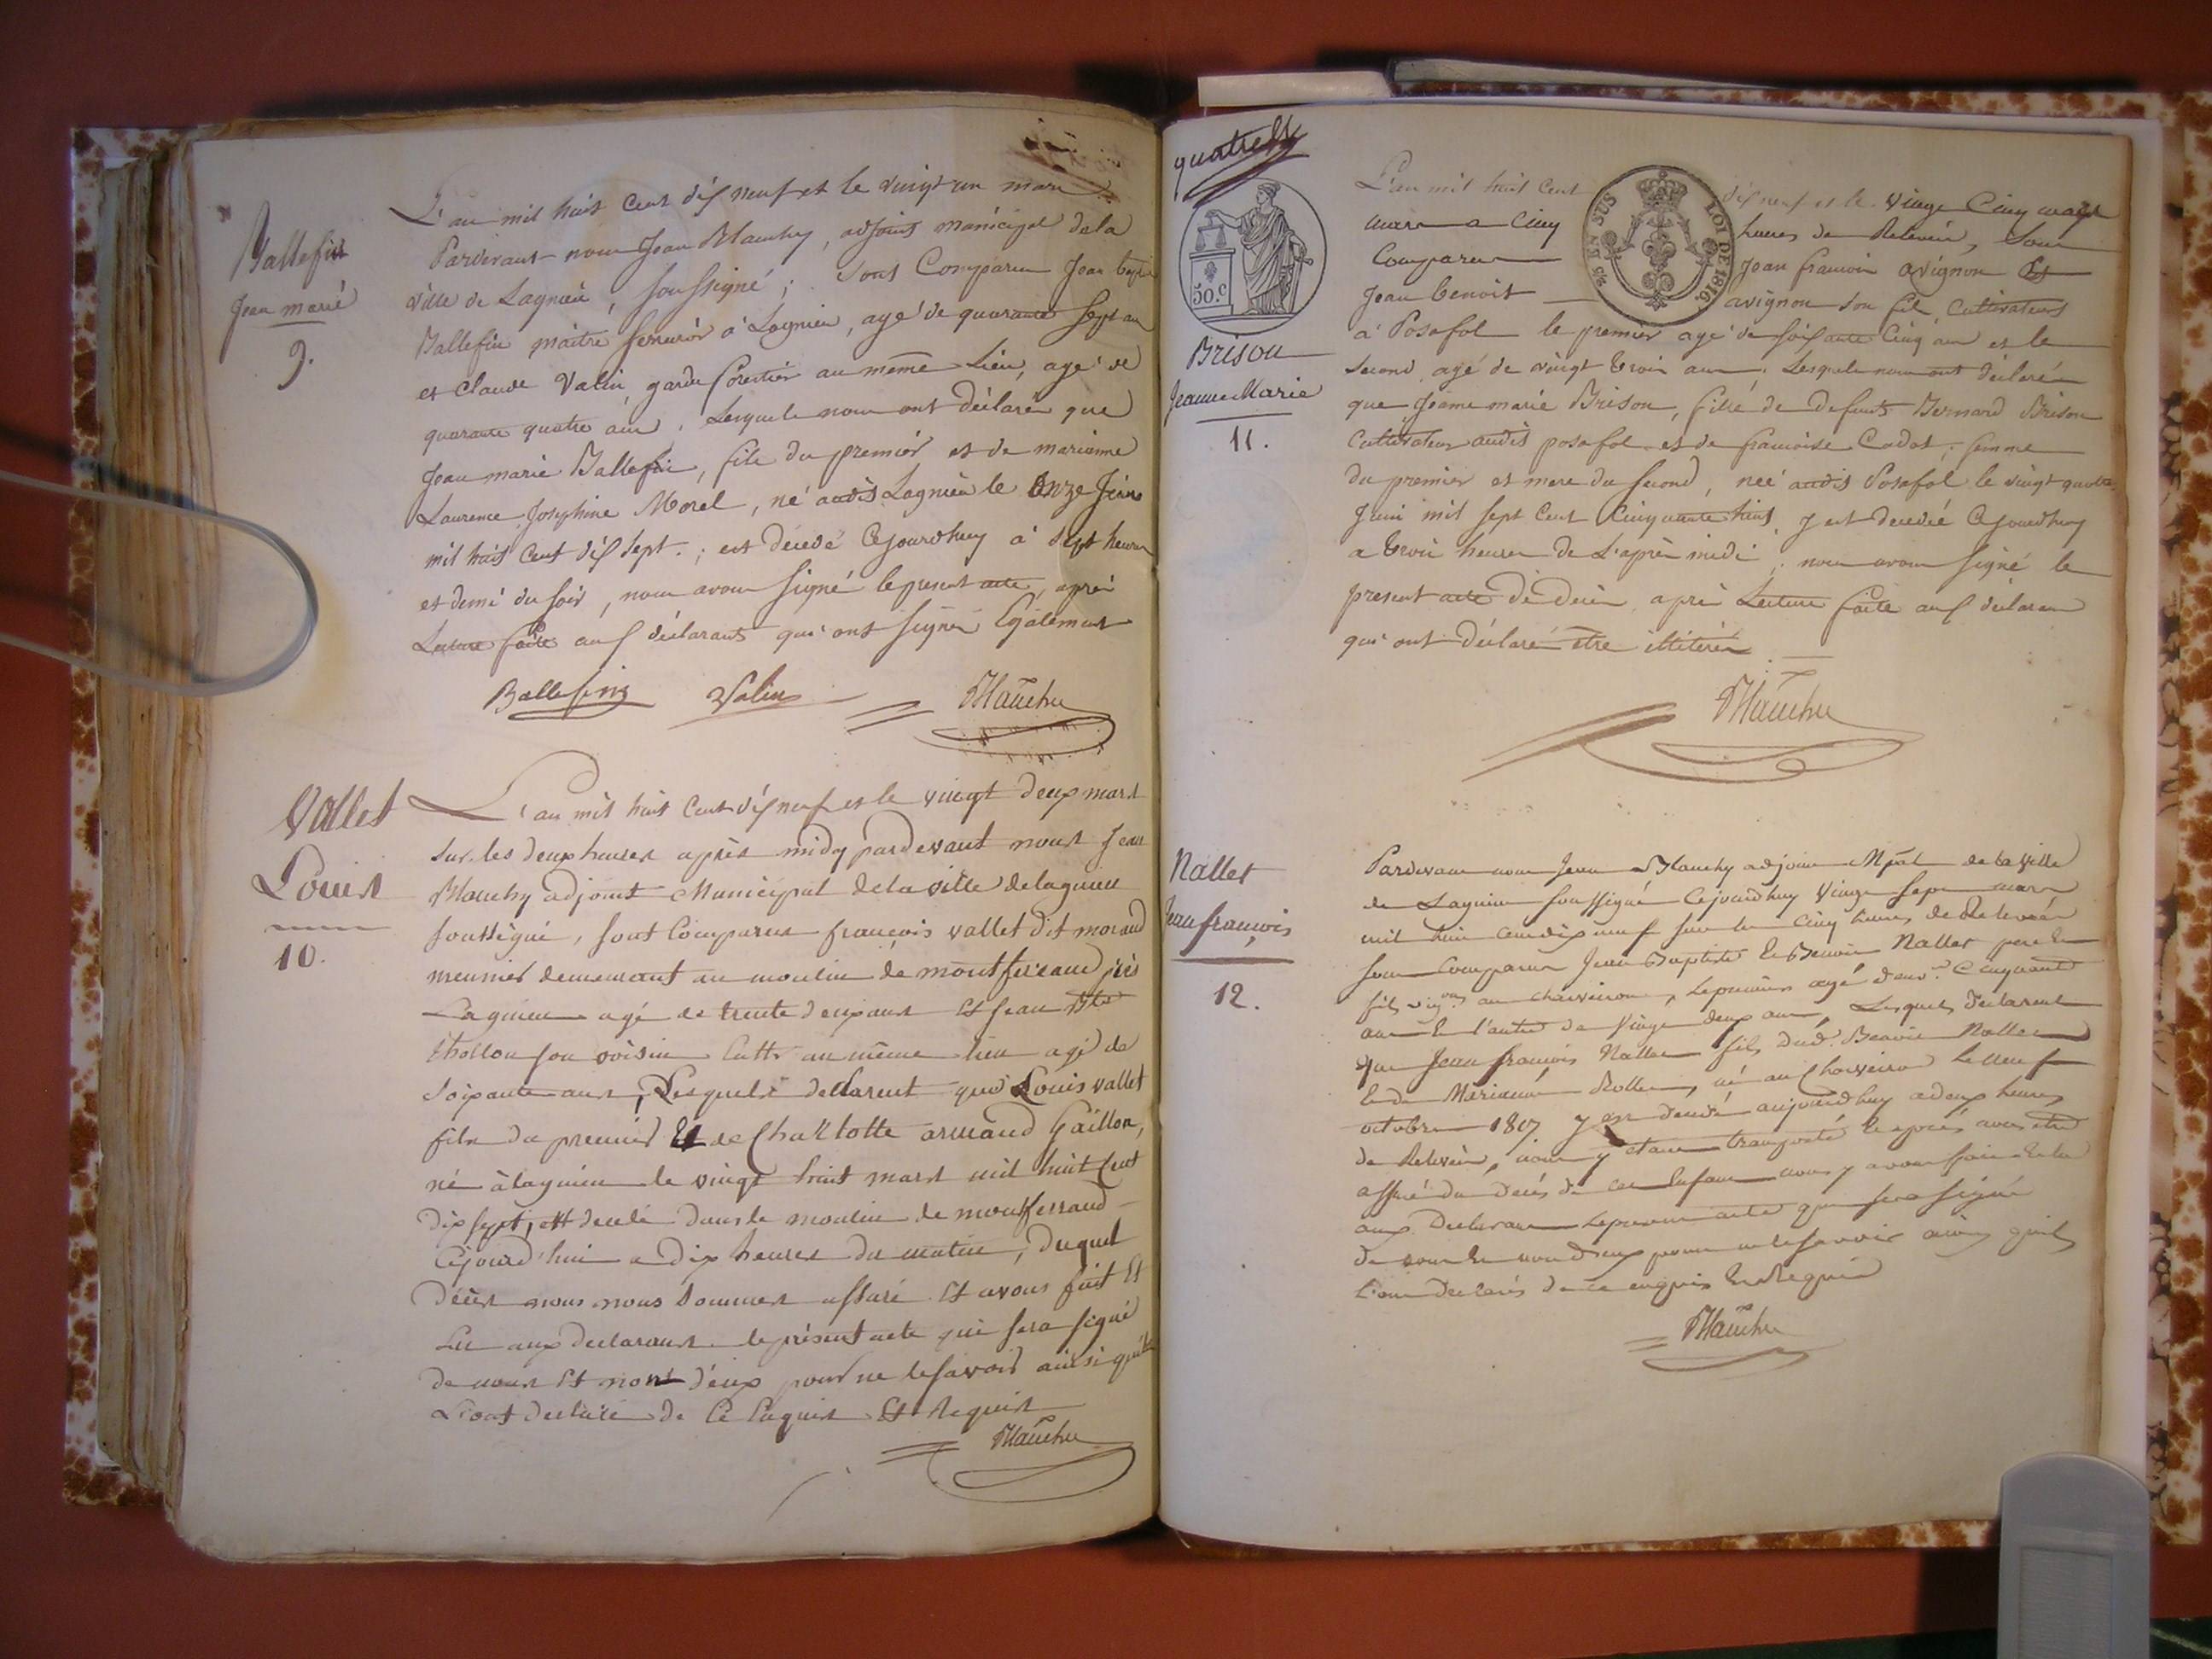 Ballefin
Jean marie
9.
L'an mil huit cent dix neuf et le vingt un mars
Pardevant nous Jean Blanchy, adjoint municipal de la
ville de Lagnieu, soussigné; sont Comparus Jean
Ballefin maitre serrurier à Lagnieu, agé de quarante sept ans
et Claude Valin, garde forestier au même Lieu, agé de
quarante quatre ans, Lesquels nous ont déclarés que
Jean marie Ballefin, fils du premier et de marianne
Laurence Josephine Morel, né audit Lagnieu le onze
mil huit cent dix sept; est décédé Cejourdhuy à sept heures
et demi du soir, nous avons signé le present acte, après
Lecture faite aux déclarants qui ont signés Egalement
Ballefin Valin Blanchy
Vallet
Louis
10.
L'an mil huit Cent dix neuf et le vingt deux mars
sur les deux heures après midy pardevant nous Jean
Blanchy adjoint Municipal de la ville de lagnieu
soussigné, sont Comparus françois vallet dit morand
meunier demeurant au moulin de montferrand près
Lagnieu agé de trente deux ans Et Jean Bte
thollon son voisin Cultr au même lieu agé de
soixante ans, Lesquels declarent que Louis vallet
fils du premier Et de Charlotte armand Gaillon,
né à lagnieu le vingt huit mars mil huit Cent
dix sept, est decedé dans le moulin de montferrand
Cejourd'hui a dix heures du matin, duquel
décès nous nous sommes assuré Et avons fait Et
Lu aux declarans le présent acte qui sera signé
de nous Et non d'eux pour ne le savoir ainsi qu'ils
L'ont declaré de Ce Enquis Et Requis
Blanchy
quatre
50.c
Brison
Jeanne Marie
11.
L'an mil huit Cent dix neuf et le vingt Cinq
mars a Cinq heures de Relevée, sont
Comparus Jean francois avignon Et
Jean Benoit avignon son fils, Cultivateurs
25 CEN SUS LOI DE 1816.
à Posafol le premier agé de soixante Cinq ans et le
second agé de vingt trois ans, Lesquels nous ont déclarés
que Jeanne marie Brison, fille de defunts Bernard Brison
Cultivateur audit posafol et de francoise Cadot, femme
du premier et mere du second, née audit Posafol le vingt quatre
Juin mil sept Cent Cinquante huit y est decedée Cejourdhuy
a trois heures de L'après midi, nous avons signé le
present acte de décès après Lecture faite aux declarans
qui ont déclaré être illitérés
Blanchy
Nallet
Jean françois
12.
Pardevant nous Jean Blanchy adjoint Mpal de la Ville
de Lagnieu soussigné Cejourdhuy Vingt sept mars
mil huit cent dix neuf sur les cinq heures de Relevée
sont comparus Jean Baptiste Et Benoit Nallet pere Et
fils au charveiron, Le premier agé d'env. Cinquante
ans Et l'autre de Vingt deux ans, Lesquels declarent
Que Jean françois Nallet fils dud. Benoit Nallet
Et de Marianne Rollet, né au Charveiron Le neuf
octobre 1807 y est decedé aujourdhuy a deux heures
de Relevée, nous y etant transporté Et après avoir été
assuré du decès de cet Enfant nous y avons fait Et lu
aux Declarans Le present acte qui sera signé
de nous Et non d'eux pour ne le savoir ainsy qu'ils
L'ont declarés de ce enquis Et Requis
Blanchy